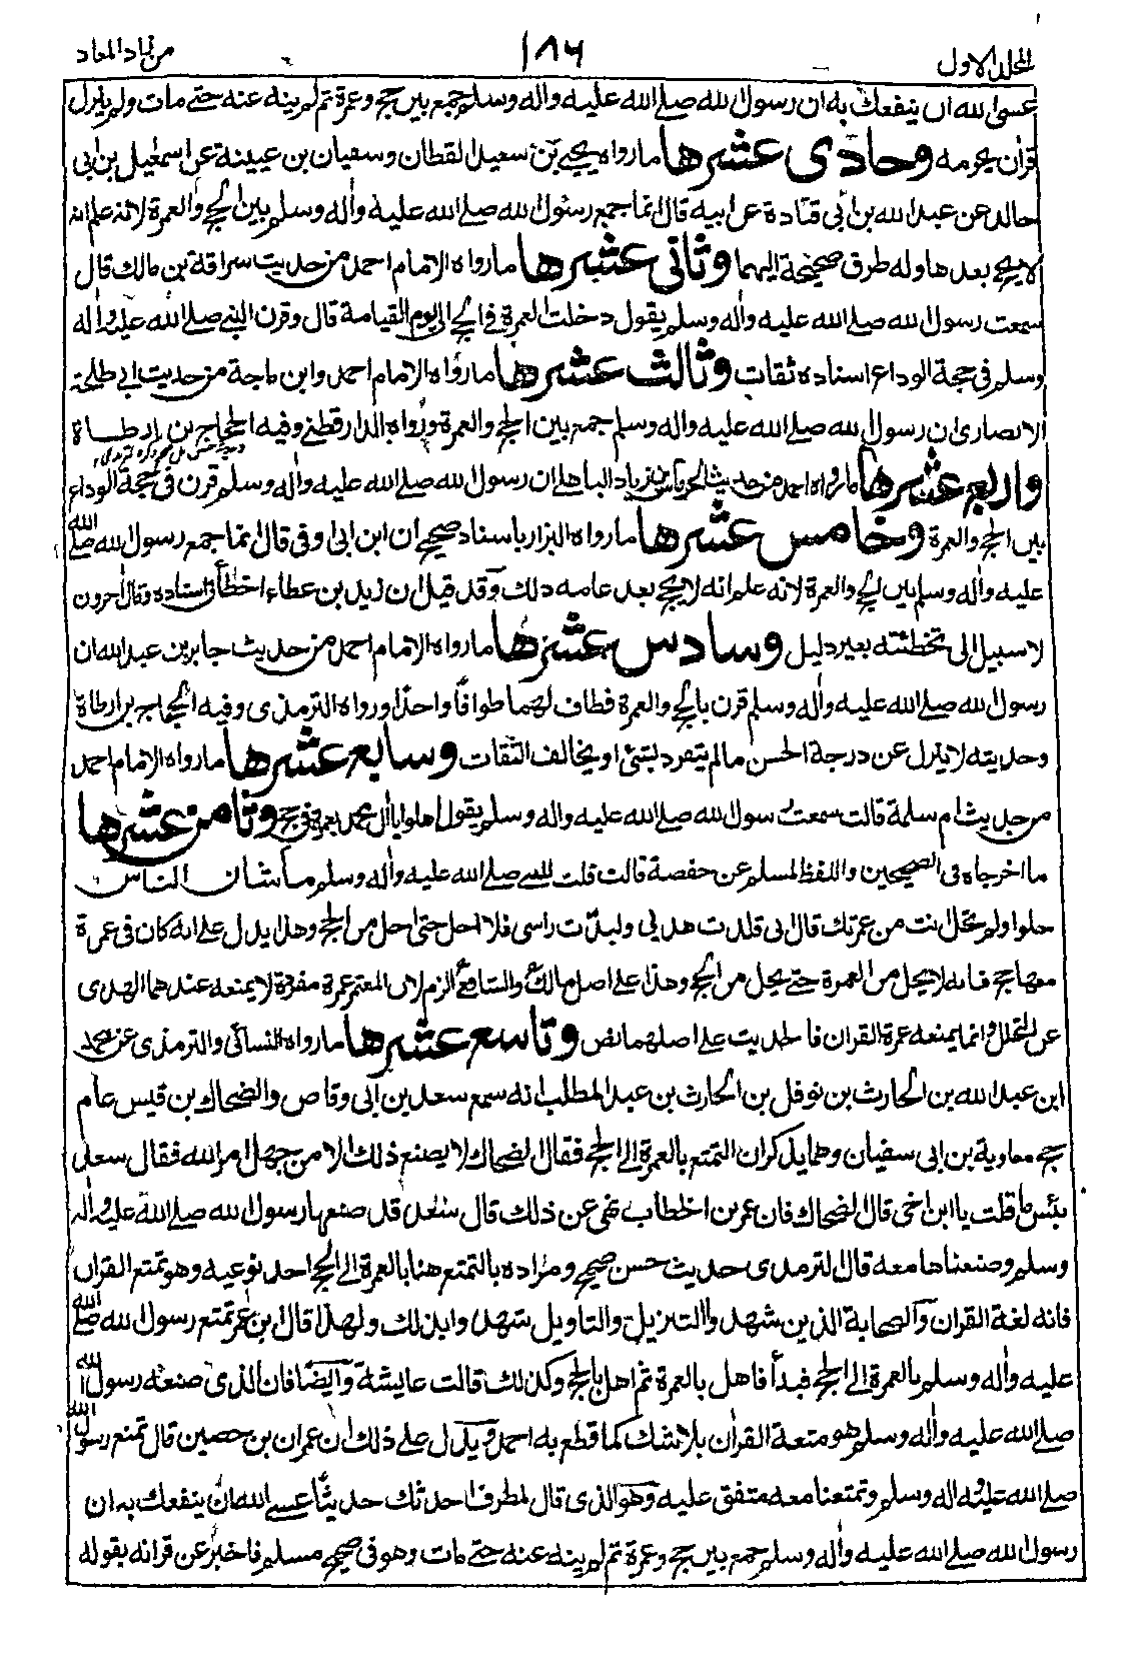 المجلد الاول
١٨٦
من زاد المعاد
عسى الله ان ينفعك به ان رسول الله صلى الله عليه واله وسلم جمع بين حج وعمرة ثم لم ينه عنه حتى مات ولم ينزل
قران يحرمه وحادى عشرها ما رواه يحيى بن سعيد القطان وسفيان بن عيينة عن اسمعيل بن ابى
خالد عن عبد الله بن ابى قتادة عن ابيه قال انما جمع رسول الله صلى الله عليه واله وسلم بين الحج والعمرة لانه علم انه
لا يحج بعدها وله طرق صحيحة اليهما وثانى عشرها ما رواه الامام احمد من حديث سراقة بن مالك قال
سمعت رسول الله صلى الله عليه واله وسلم يقول دخلت العمرة فى الحج الى يوم القيامة قال وقرن النبى صلى الله عليه واله
وسلم فى حجة الوداع اسناده ثقات وثالث عشرها ما رواه الامام احمد وابن ماجة من حديث ابى طلحة
الانصارى ان رسول الله صلى الله عليه واله وسلم جمع بين الحج والعمرة ورواه الدارقطنى وفيه الحجاج بن ارطاة
ورابع عشرها ما رواه احمد من حديث الهرماس بن زياد الباهلى ان رسول الله صلى الله عليه واله وسلم قرن فى حجة الوداع
بين الحج والعمرة وخامس عشرها ما رواه البزار باسناد صحيح ان ابن ابى اوفى قال انما جمع رسول الله صلى الله
عليه واله وسلم بين الحج والعمرة لانه علم انه لا يحج بعد عامه ذلك وقد قيل ان زيد بن عطاء اخطأ فى اسناده وقال اخرون
لا سبيل الى تخطئته بغير دليل وسادس عشرها ما رواه الامام احمد من حديث جابر بن عبد الله ان
رسول الله صلى الله عليه واله وسلم قرن بالحج والعمرة فطاف لهما طوافًا واحدًا ورواه الترمذى وفيه الحجاج بن ارطاة
وحديثه لا ينزل عن درجة الحسن ما لم يتفرد بشئ او يخالف الثقات وسابع عشرها ما رواه الامام احمد
من حديث ام سلمة قالت سمعت رسول الله صلى الله عليه واله وسلم يقول اهلوا يا ال محمد بعمرة فى حج وثامن عشرها
ما اخرجاه فى الصحيحين واللفظ لمسلم عن حفصة قالت قلت للنبى صلى الله عليه واله وسلم ما شان الناس
حلوا ولم تحل انت من عمرتك قال انى قلدت هديى ولبدت راسى فلا احل حتى احل من الحج وهذا يدل على انه كان فى عمرة
معها حج فانه لا يحل من العمرة حتى يحل من الحج وهذا على اصل مالك والشافعى الزم لان المعتمر عمرة مفردة لا يمنعه عندهما الهدى
عن التحلل وانما يمنعه عمرة القران فالحديث على اصلهما نص وتاسع عشرها ما رواه النسائى والترمذى عن محمد
ابن عبد الله بن الحارث بن نوفل بن الحارث بن عبد المطلب انه سمع سعد بن ابى وقاص والضحاك بن قيس عام
حج معاوية بن ابى سفيان وهما يذكران التمتع بالعمرة الى الحج فقال الضحاك لا يصنع ذلك الا من جهل امر الله فقال سعد
بئس ما قلت يا ابن اخى قال الضحاك فان عمر بن الخطاب نهى عن ذلك قال سعد قد صنعها رسول الله صلى الله عليه واله
وسلم وصنعناها معه قال الترمذى حديث حسن صحيح ومراده بالتمتع هنا بالعمرة الى الحج احد نوعيه وهو تمتع القران
فانه لغة القران والصحابة الذين شهدوا التنزيل والتاويل شهدوا بذلك ولهذا قال ابن عمر تمتع رسول الله صلى الله
عليه واله وسلم بالعمرة الى الحج فبدأ فاهل بالعمرة ثم اهل بالحج وكذلك قالت عايشة وايضًا فان الذى صنعه رسول الله
صلى الله عليه واله وسلم هو متعة القران بلا شك كما قطع به احمد ويدل على ذلك ان عمران بن حصين قال تمتع رسول الله
صلى الله عليه واله وسلم وتمتعنا معه متفق عليه وهو الذى قال لمطرف احدثك حديثًا عسى الله ان ينفعك به ان
رسول الله صلى الله عليه واله وسلم جمع بين حج وعمرة ثم لم ينه عنه حتى مات وهو فى صحيح مسلم فاخبر عن قرانه بقوله